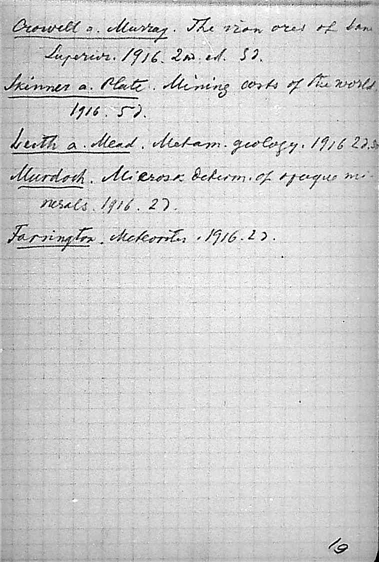 Crowell a. Murray. The iron ores of Lake
Superior. 1916. 2nd. ed. 3 d.
Skinner a. Plate. Mining costs of the world.
1916. 5 d.
Leith a. Mead. Metam. geology. 1916 2 d.
Murdoch. Microsk. determ. of opaque mi-
nerals. 1916. 2 d.
Farrington. Meteorites. 1916. 2 d.
19